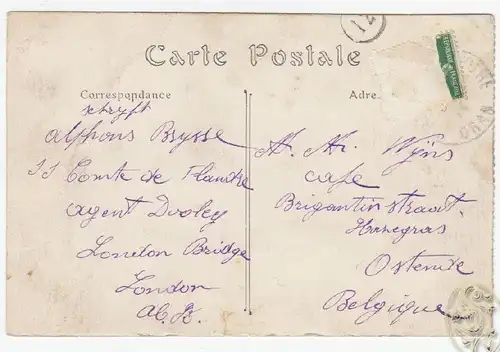 12
Carte Postale
Correspondance
Adre
schryft
Alphons Brysse
SS Comte de Flandre
agent Dooley
London Bridge
London
REPUBLIQUE FRANCAISE
ORAN
Wyns
Cafe
Brigantin straat
Hazegras
Ostende
Belgique